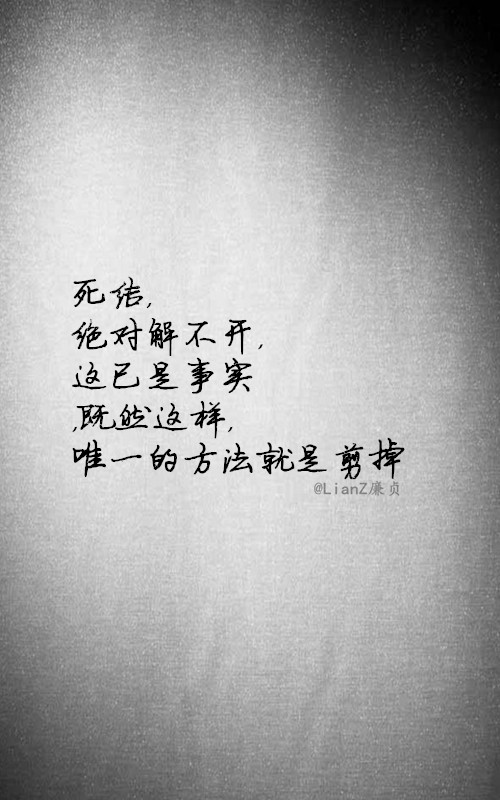 死结,
绝对解不开,
这已是事实
,既然这样,
唯一的方法就是剪掉
@LianZ廉贞